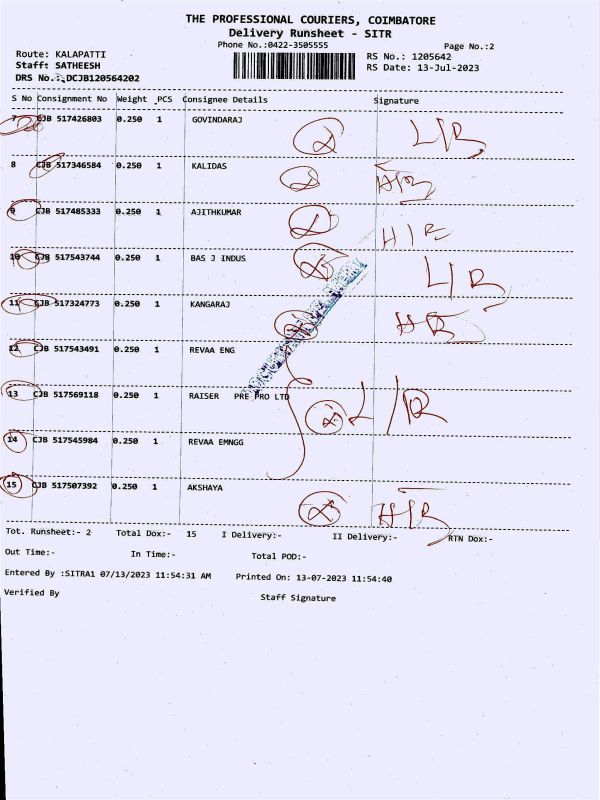 THE PROFESSIONAL COURIERS, COIMBATORE
Delivery Runsheet - SITR
Phone No.:0422-3505555
Page No.:2
Route: KALAPATTI
RS No.: 1205642
Staff: SATHEESH
RS Date: 13-Jul-2023
DRS No.:.DCJB120564202
S No Consignment No Weight PCS Consignee Details Signature
7 CJB 517426803 0.250 1 GOVINDARAJ L/R
8 CJB 517346584 0.250 1 KALIDAS H/R
9 CJB 517485333 0.250 1 AJITHKUMAR H/R
10 CJB 517543744 0.250 1 BAS J INDUS L/R
11 CJB 517324773 0.250 1 KANGARAJ H/R
12 CJB 517543491 0.250 1 REVAA ENG
13 CJB 517569118 0.250 1 RAISER PRE PRO LTD L/R
14 CJB 517545984 0.250 1 REVAA EMNGG
15 CJB 517507392 0.250 1 AKSHAYA H/R
Tot. Runsheet:- 2 Total Dox:- 15 I Delivery:- II Delivery:- RTN Dox:-
Out Time:- In Time:- Total POD:-
Entered By :SITRA1 07/13/2023 11:54:31 AM Printed On: 13-07-2023 11:54:40
Verified By Staff Signature